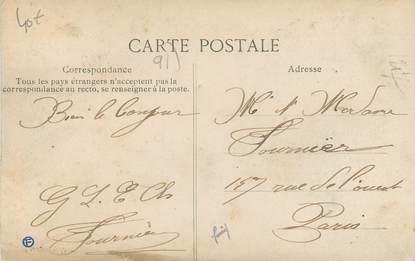 Lot
CARTE POSTALE
91
Correspondance
Tous les pays étrangers n'acceptent pas la
correspondance au recto, se renseigner à la poste.
Bien le Bonjour
G L E Ch
Fournier
Adresse
Mr & Madame
Fournier
157 rue de l'ouest
Paris